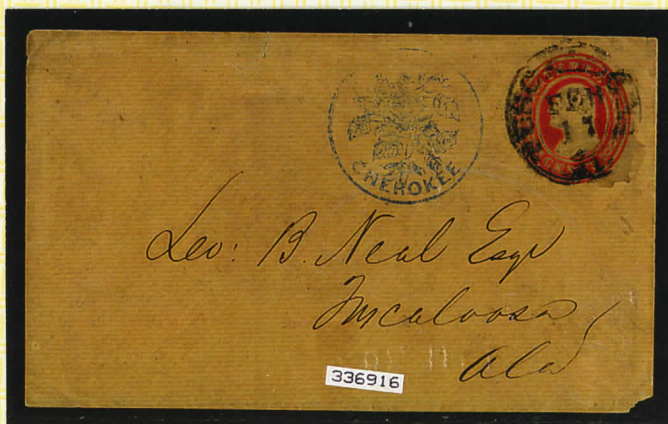 CHEROKEE
FEB
17
Leo: B. Neal Esqr
Tuscaloosa
Ala
336916